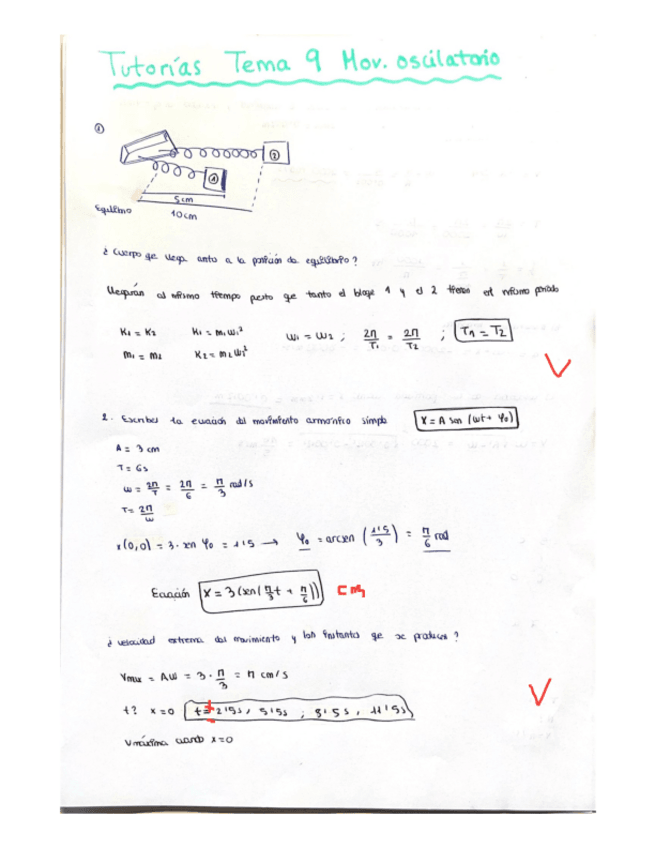 Tutorías Tema 9 Mov. oscilatorio
①
②
①
5cm
Equilibrio
10cm
¿ Cuerpo qe llega antes a la posición de equilibrio?
Llegarán al mismo tiempo puesto que tanto el bloqe 1 y el 2 tienen el mismo periodo
K₁ = K₂ K₁ = m₁ω₁² ω₁ = ω₂ ; 2π/T₁ = 2π/T₂ ; T₁ = T₂
m₁ = m₂ K₂ = m₂ω₂²
2. Escribes la ecuación del movimiento armonico simple x = A sen (ωt + φ₀)
A = 3 cm
T = 6s
ω = 2π/T = 2π/6 = π/3 rad/s
T = 2π/ω
x(0,0) = 3 · sen φ₀ = 1'5 → φ₀ = arcsen (1'5/3) = π/6 rad
Ecuación x = 3 (sen (π/3 t + π/6)) cm
¿ velocidad extrema del movimiento y los instantes qe se produce?
Vmax = Aω = 3 · π/3 = π cm/s
t? x=0 t = 2'5s, 5'5s ; 8'5s, 11'5s
V máxima cuando x=0